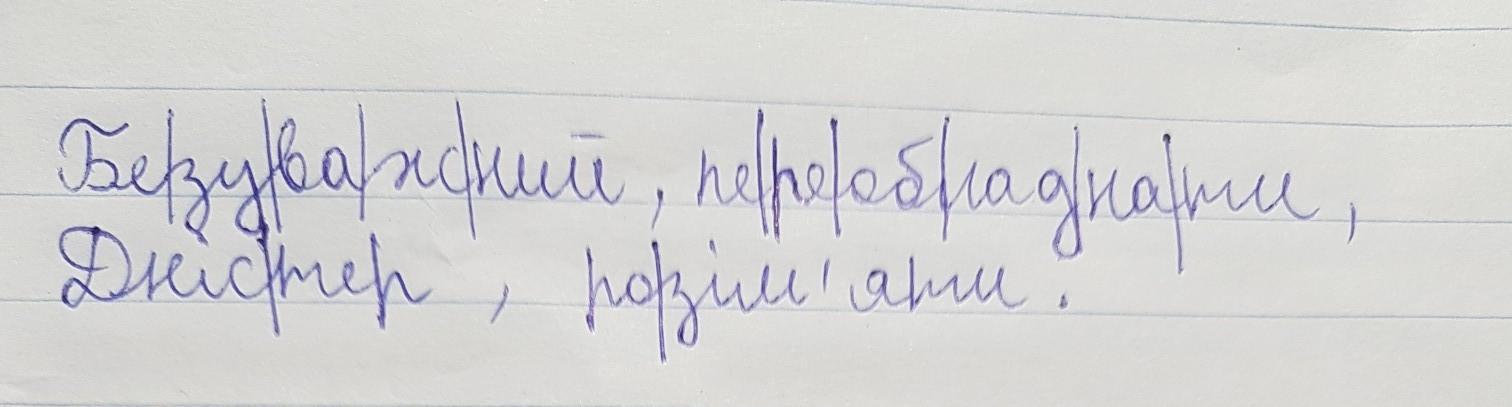 Бе|зу|ва|ж|ний, пе|ре|об|лад|на|ти,
Дніс|тер, ро|зім'яти.